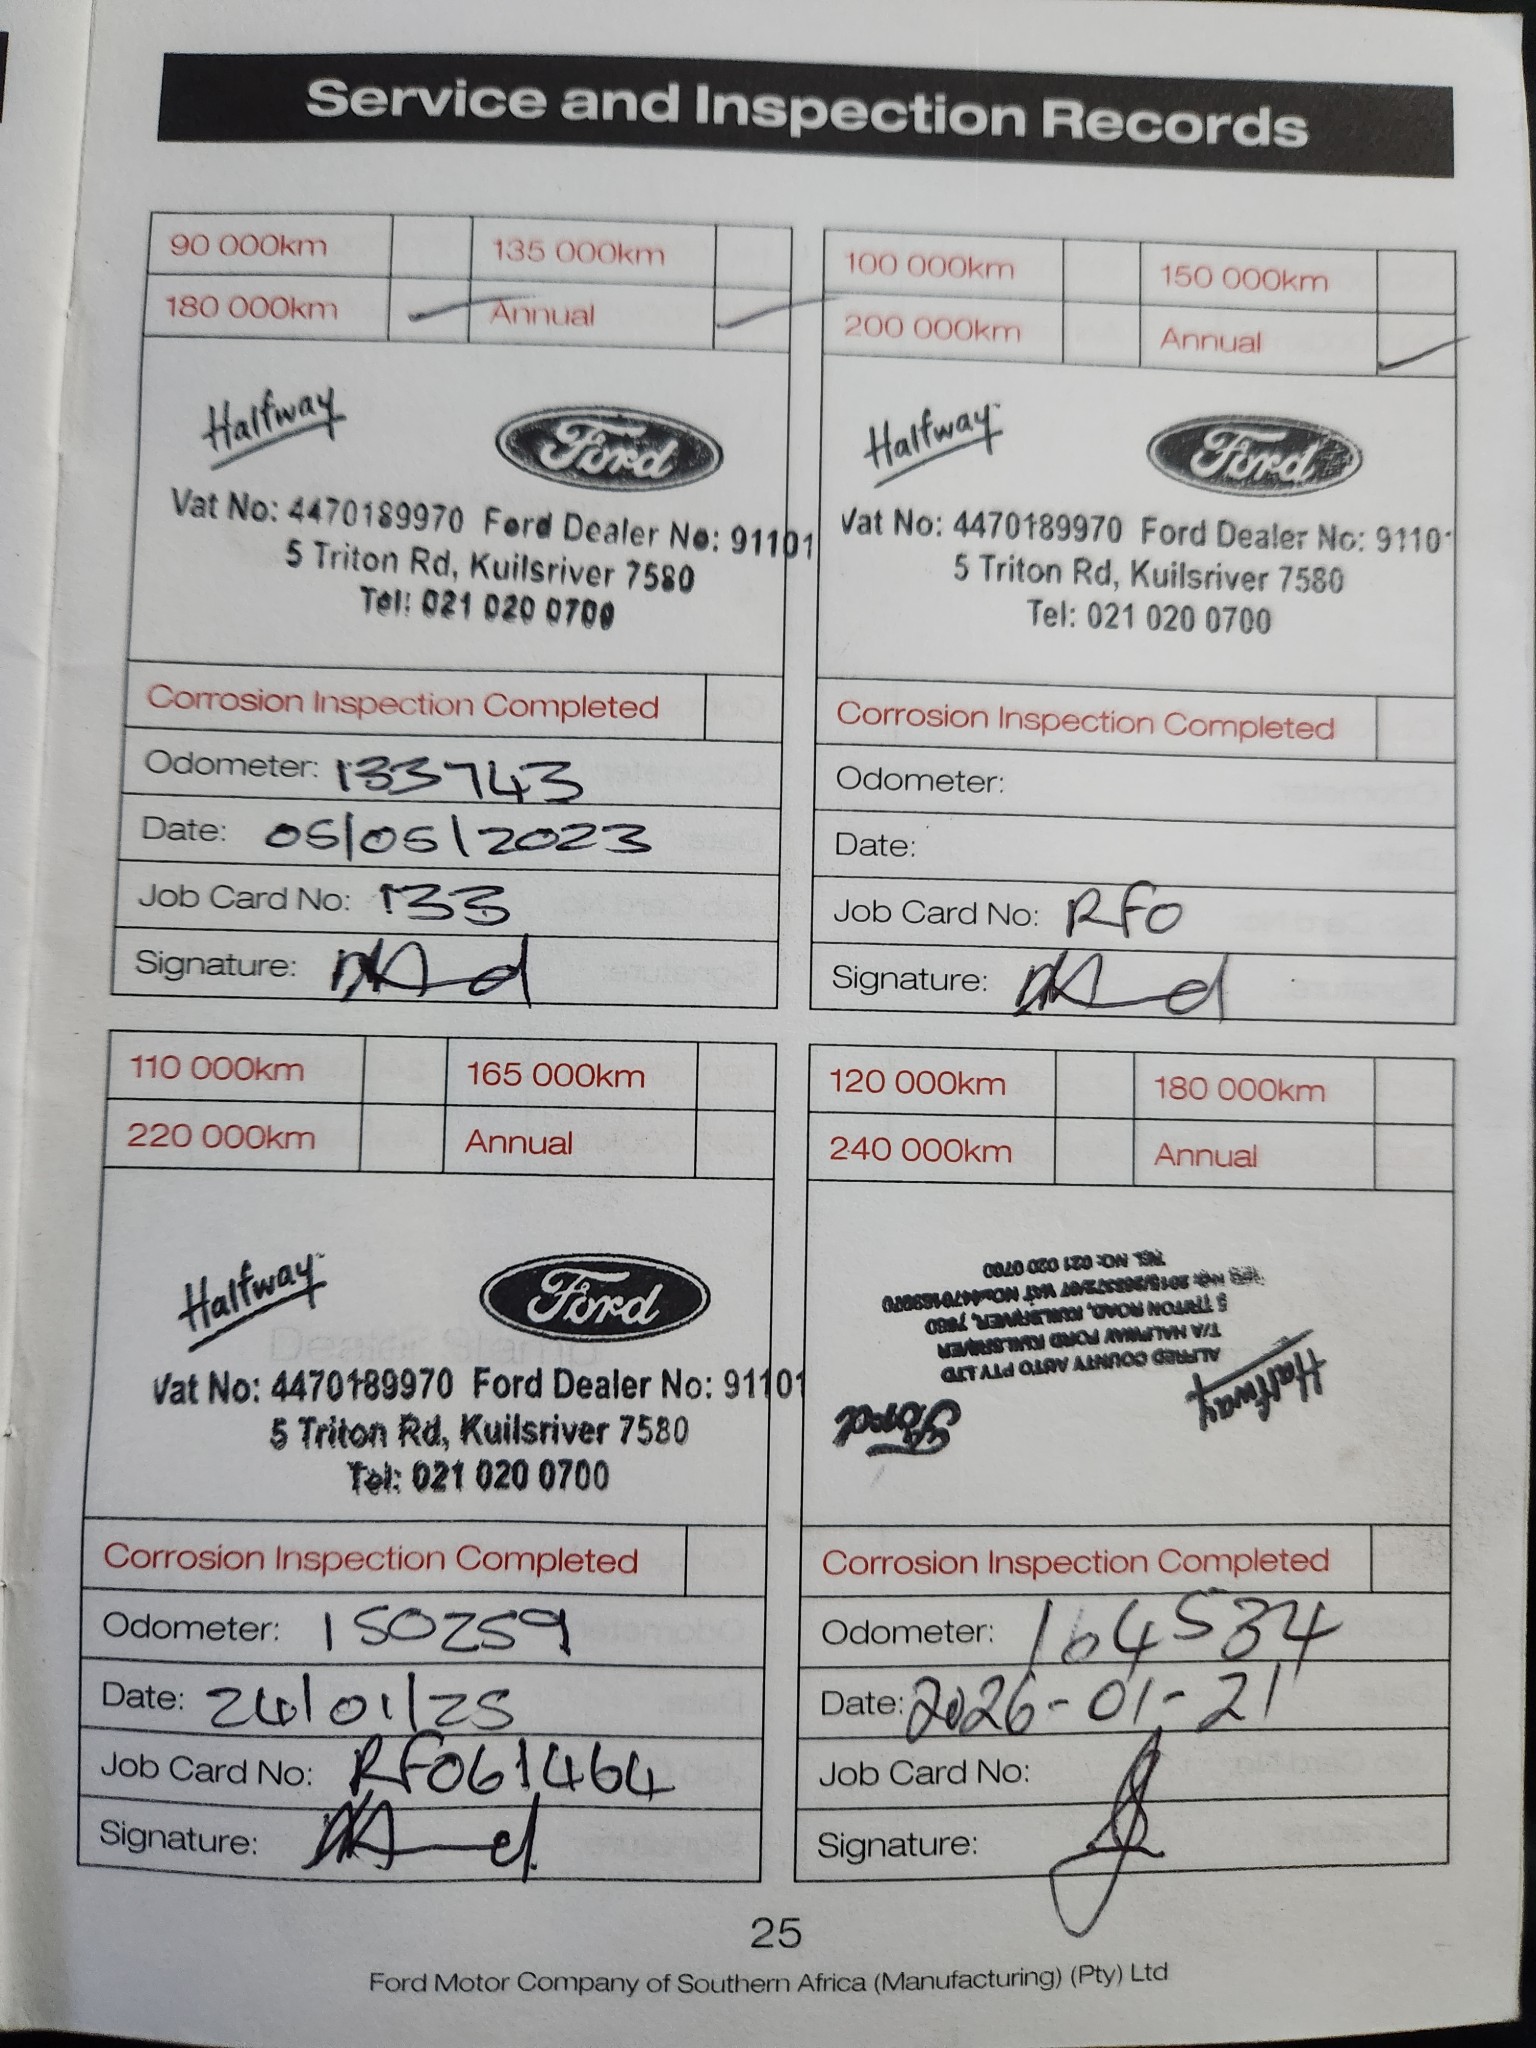 Service and Inspection Records
90 000km 135 000km
180 000km Annual
Halfway Ford
Vat No: 4470189970 Ford Dealer No: 91101
5 Triton Rd, Kuilsriver 7580
Tel: 021 020 0700
Corrosion Inspection Completed
Odometer: 133743
Date: 05/05/2023
Job Card No: 133
Signature:
100 000km 150 000km
200 000km Annual
Halfway Ford
Vat No: 4470189970 Ford Dealer No: 91101
5 Triton Rd, Kuilsriver 7580
Tel: 021 020 0700
Corrosion Inspection Completed
Odometer:
Date:
Job Card No: RFO
Signature:
110 000km 165 000km
220 000km Annual
Halfway Ford
Vat No: 4470189970 Ford Dealer No: 91101
5 Triton Rd, Kuilsriver 7580
Tel: 021 020 0700
Corrosion Inspection Completed
Odometer: 150259
Date: 24/01/25
Job Card No: RFO61464
Signature:
120 000km 180 000km
240 000km Annual
Halfway Ford
ALFRED COUNTY AUTO PTY LTD
T/A HALFWAY FORD KUILSRIVER
5 TRITON ROAD, KUILSRIVER, 7580
VAT NO.:4470189970
TEL NO: 021 020 0700
Corrosion Inspection Completed
Odometer: 164534
Date: 2026-01-21
Job Card No:
Signature:
25
Ford Motor Company of Southern Africa (Manufacturing) (Pty) Ltd